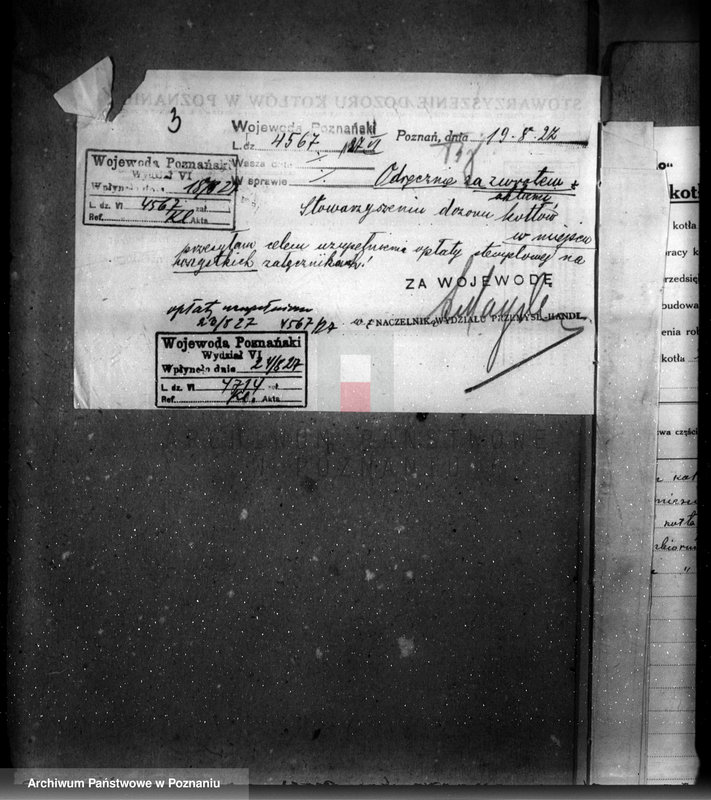 STOWARZYSZENIE DOZORU KOTŁÓW W POZNANIU
3
Wojewoda Poznański
L. dz. 4567/27 VI
Poznań, dnia 19.8.27
Wasza data /
W sprawie /
Wojewoda Poznański
Wydział VI
Wpłynęło dnia 18/8 27
L. dz. VI 4567 zał.
Ref. Kl. Akta
Odręcznie za zwrotem
Stowarzyszeniu dozoru kotłów
w miejscu
przesyłam celem uzupełnienia opłaty stemplowej na
wszystkich załącznikach!
ZA WOJEWODĘ
NACZELNIK WYDZIAŁU PRZEMYSŁ.-HANDL.
opłaty uzupełniono
23/8 27 4567/27
Wojewoda Poznański
Wydział VI
Wpłynęło dnia 24/8 27
L. dz. VI 4714 zał.
Ref. Kl. Akta
ARCHIWUM PAŃSTWOWE
W POZNANIU
o"
kotł
kotła
pracy k
przedsię
budowa
enia rob
kotła
wa części
kotła
"
Archiwum Państwowe w Poznaniu